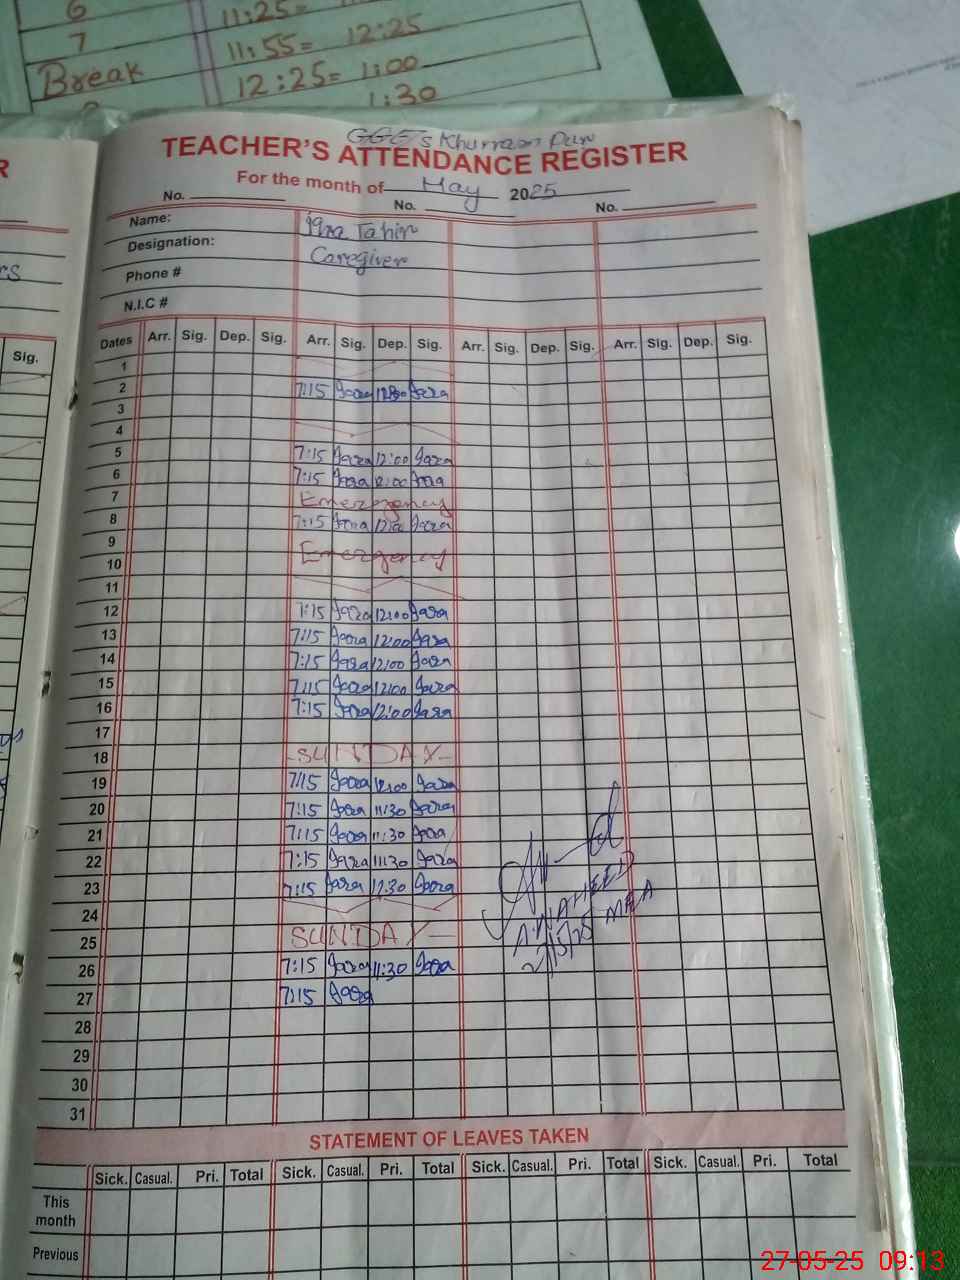 6 11:25=
7 11:55= 12:25
Break 12:25= 1:00
1:30
R
GGES Khurram Pur
TEACHER'S ATTENDANCE REGISTER
For the month of May 2025
No. No. No.
Name: Iqra Tahir
Designation: Caregiver
Phone #
N.I.C #
Sig.
Dates Arr. Sig. Dep. Sig. Arr. Sig. Dep. Sig. Arr. Sig. Dep. Sig. Arr. Sig. Dep. Sig.
1
2 7:15 Iqra Iqra
3
4
5 7:15 Iqra 12:00 Iqra
6 7:15 Iqra 12:00 Iqra
7 Emergency
8 7:15 Iqra 12:00 Iqra
9
10 Emergency
11
12 7:15 Iqra 12:00 Iqra
13 7:15 Iqra 12:00 Iqra
14 7:15 Iqra 12:00 Iqra
15 7:15 Iqra 12:00 Iqra
16 7:15 Iqra 12:00 Iqra
17
18 -SUNDAY-
19 7:15 Iqra 12:00 Iqra
20 7:15 Iqra 11:30 Iqra
21 7:15 Iqra 11:30 Iqra
22 7:15 Iqra 11:30 Iqra
23 7:15 Iqra 11:30 Iqra
24
25 SUNDAY-
26 7:15 Iqra 11:30 Iqra
27 7:15 Iqra
28
29
30
31
A.NAHEED
27/5/25 MEA
STATEMENT OF LEAVES TAKEN
Sick. Casual. Pri. Total Sick. Casual. Pri. Total Sick. Casual. Pri. Total Sick. Casual. Pri. Total
This month
Previous
27-05-25 09:13